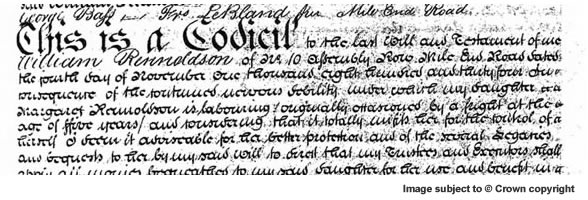 George Bass Frs LeBland Jnr Mile End Road
This is a Codicil to the last Will and Testament of me
William Rennoldson of No 10 Assembly Row Mile End Road dated
the fourth day of November One thousand eight hundred and thirty four In
consequence of the continued nervous debility under which my daughter
Margaret Rennoldson is labouring (originally by a fright at the
age of ffive years) and considering that it totally unfits her for the control of
herself I deem it advisable for her better protection and of the several Legacies
and bequests to her by my said Will to direct that my Trustees and Executors shall
all monies bequeathed to my said daughter for her use and benefit in
Image subject to © Crown copyright